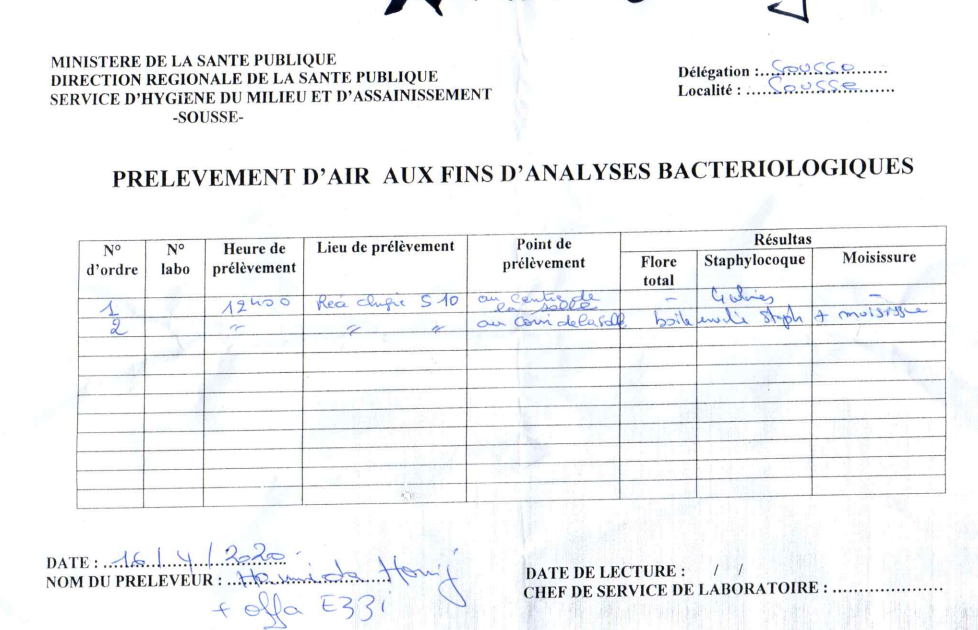 MINISTERE DE LA SANTE PUBLIQUE
DIRECTION REGIONALE DE LA SANTE PUBLIQUE
SERVICE D'HYGiENE DU MILIEU ET D'ASSAINISSEMENT
-SOUSSE-
Délégation :..Sousse
Localité : ...Sousse
PRELEVEMENT D'AIR AUX FINS D'ANALYSES BACTERIOLOGIQUES
N° d'ordre N° labo Heure de prélèvement Lieu de prélèvement Point de prélèvement Résultas
Flore total Staphylocoque Moisissure
1 12h00 Rea S 10 au centre de la salle - 4 -
2 " " " au coin de la salle boite staph + moisissure
DATE : 16/4/2020
NOM DU PRELEVEUR : Hamida
+ olfa EZZi
DATE DE LECTURE : / /
CHEF DE SERVICE DE LABORATOIRE :